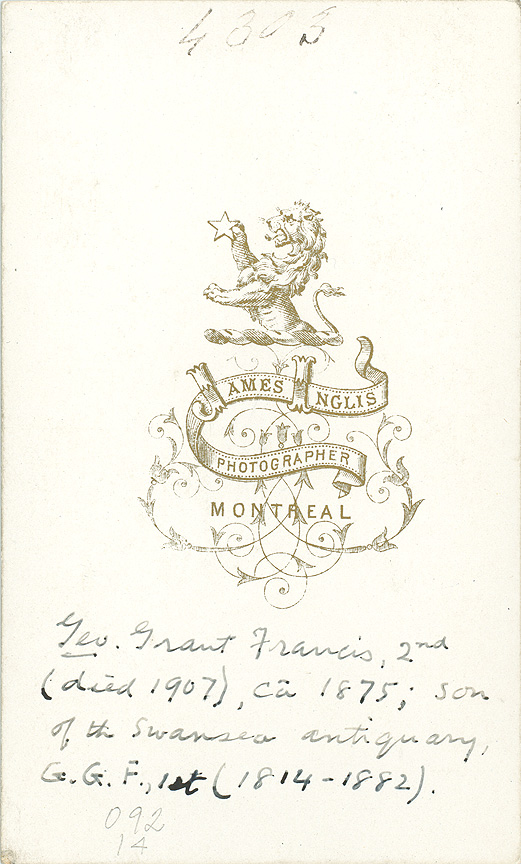 4303
JAMES INGLIS
PHOTOGRAPHER
MONTREAL
Geo. Grant Francis, 2nd
(died 1907), ca 1875; son
of th Swansea antiquary,
G.G.F., 1st (1814-1882).
092
14